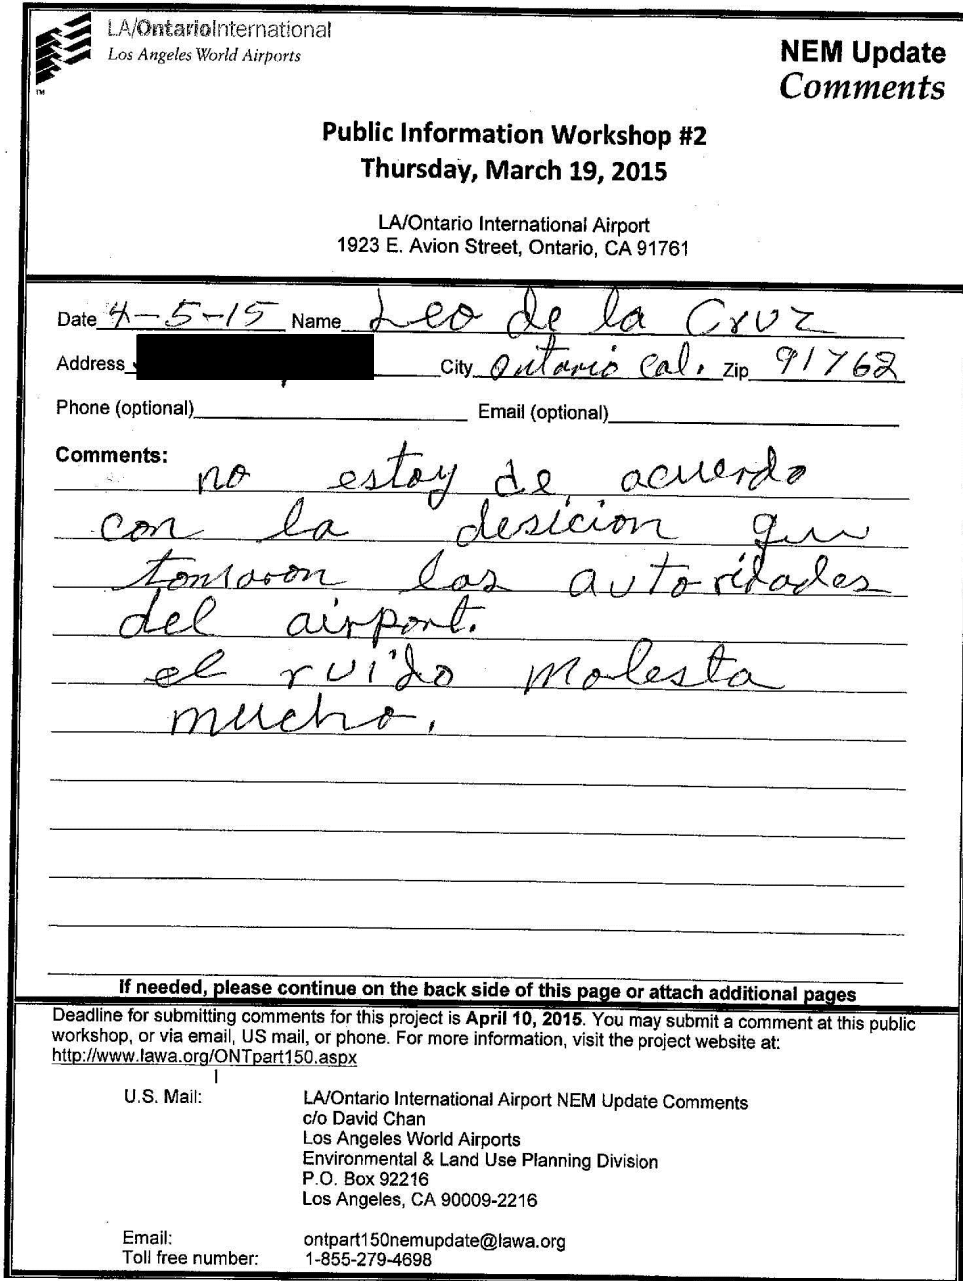 LA/OntarioInternational
Los Angeles World Airports
TM
NEM Update
Comments
Public Information Workshop #2
Thursday, March 19, 2015
LA/Ontario International Airport
1923 E. Avion Street, Ontario, CA 91761
Date 4-5-15 Name Leo de la Cruz
Address City Ontario Cal. Zip 91762
Phone (optional) Email (optional)
Comments:
no estoy de acuerdo
con la desicion que
tomaron las autoridades
del airport.
el ruido molesta
mucho.
If needed, please continue on the back side of this page or attach additional pages
Deadline for submitting comments for this project is April 10, 2015. You may submit a comment at this public
workshop, or via email, US mail, or phone. For more information, visit the project website at:
http://www.lawa.org/ONTpart150.aspx
U.S. Mail: LA/Ontario International Airport NEM Update Comments
c/o David Chan
Los Angeles World Airports
Environmental & Land Use Planning Division
P.O. Box 92216
Los Angeles, CA 90009-2216
Email: ontpart150nemupdate@lawa.org
Toll free number: 1-855-279-4698